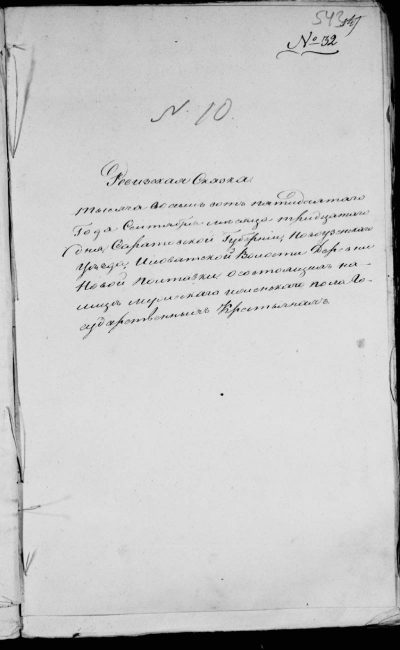 543
№ 32
N. 10.
Ревизская Сказка
тысяча восемь сотъ пятидесятаго
Года Сентября месяца тридцатаго
дня Саратовской Губернiи, Новоузенскаго
Уезда, Иловатской Волости Деревни
Новой Полтавки осостоящихъ на
лицо мужескаго иженскаго пола Го-
сударственныхъ Крестьянахъ